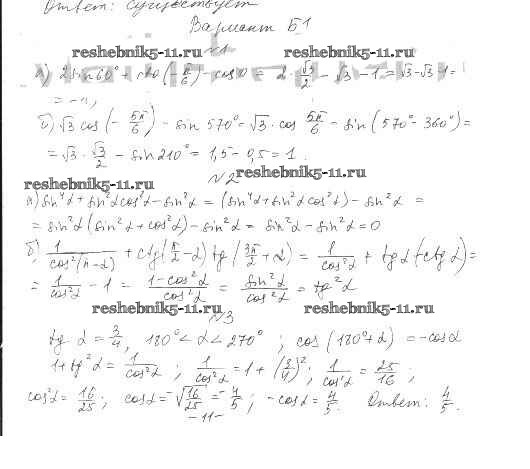 Ответ: существует
Вариант Б1
reshebnik5-11.ru №1 reshebnik5-11.ru
а) 2sin60° + ctg(-π/6) - cos0 = 2·√3/2 - √3 - 1 = √3-√3-1=
= -1,
б) √3 cos(-5π/6) - sin 570° = √3·cos 5π/6 - sin(570°-360°)=
= √3·√3/2 - sin210° = 1,5-0,5=1.
reshebnik5-11.ru №2 reshebnik5-11.ru
а) sin⁴α + sin²αcos²α - sin²α = (sin⁴α + sin²αcos²α) - sin²α =
= sin²α(sin²α + cos²α) - sin²α = sin²α - sin²α = 0
б) 1/cos²(π-α) + ctg(π/2-α) tg(3π/2+α) = 1/cos²α + tgα(-ctgα)=
= 1/cos²α - 1 = 1-cos²α/cos²α = sin²α/cos²α = tg²α
reshebnik5-11.ru №3 reshebnik5-11.ru
tg α = 3/4, 180°<α<270°; cos(180°+α) = -cosα
1+tg²α = 1/cos²α; 1/cos²α = 1+(3/4)²; 1/cos²α = 25/16;
cos²α = 16/25; cosα = -√16/25 = -4/5; -cosα = 4/5. Ответ: 4/5.
-11-